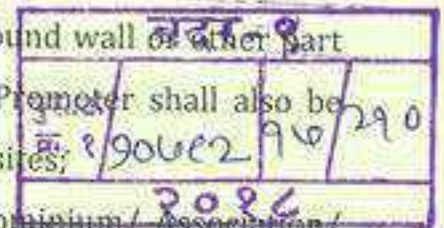 ound wall or other part
बदर - ९
Promoter shall also be
१०७८२ १७ २१०
sites;
२०१८
ominium/ Association/